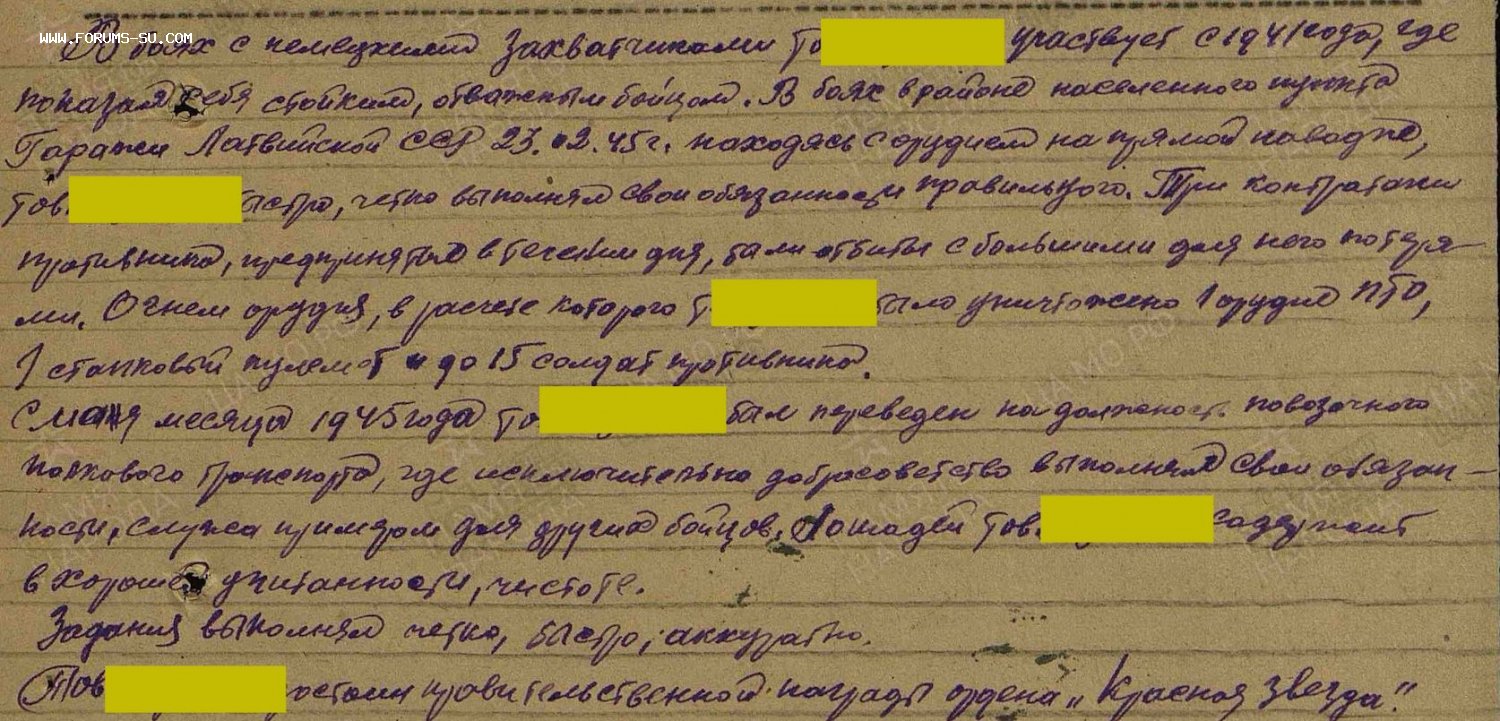 www.forums-su.com
В боях с немецкими захватчиками то участвует с 1941 года, где
показал себя стойким, отважным бойцом. В боях в районе населенного пункта
Гаражи Латвийской ССР 23.02.45 г. находясь с орудием на прямой наводке,
тов. ыстро, четко выполнял свои обязанности правильного. Три контратаки
противника, предпринятые в течении дня, были отбиты с большими для него потеря-
ми. Огнем орудия, в расчете которого т. было уничтожено 1 орудие ПТО,
1 станковый пулемет и до 15 солдат противника.
С мая месяца 1945 года то был переведен на должность повозочного
полкового транспорта, где исключительно добросовестно выполнял свои обязан-
ности, служа примером для других бойцов. Лошадей тов. содержит
в хорошей упитанности, чистоте.
Задания выполнял четко, быстро, аккуратно.
Тов достоин правительственной награды ордена „Красная звезда".